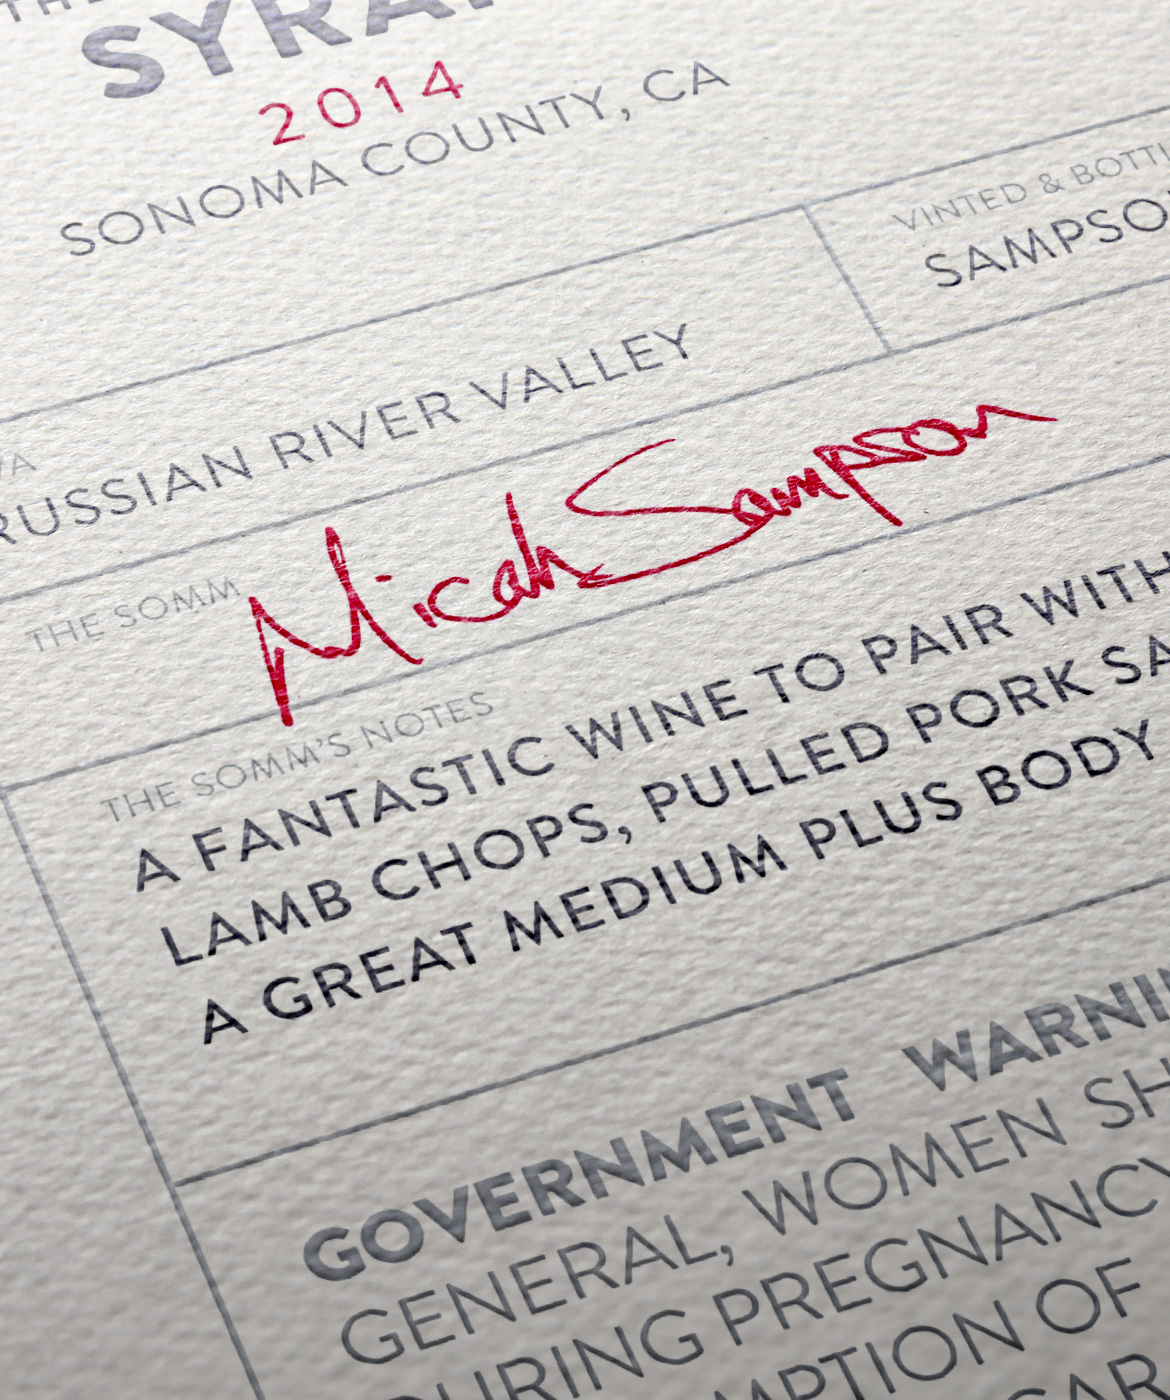 THE
SYRA
2014
SONOMA COUNTY, CA
VINTED & BOTTL
SAMPSO
VA
RUSSIAN RIVER VALLEY
THE SOMM
Micah Sampson
THE SOMM'S NOTES
A FANTASTIC WINE TO PAIR WITH
LAMB CHOPS, PULLED PORK SA
A GREAT MEDIUM PLUS BODY
GOVERNMENT WARNI
GENERAL, WOMEN SH
DURING PREGNANCY
MPTION OF
CAR